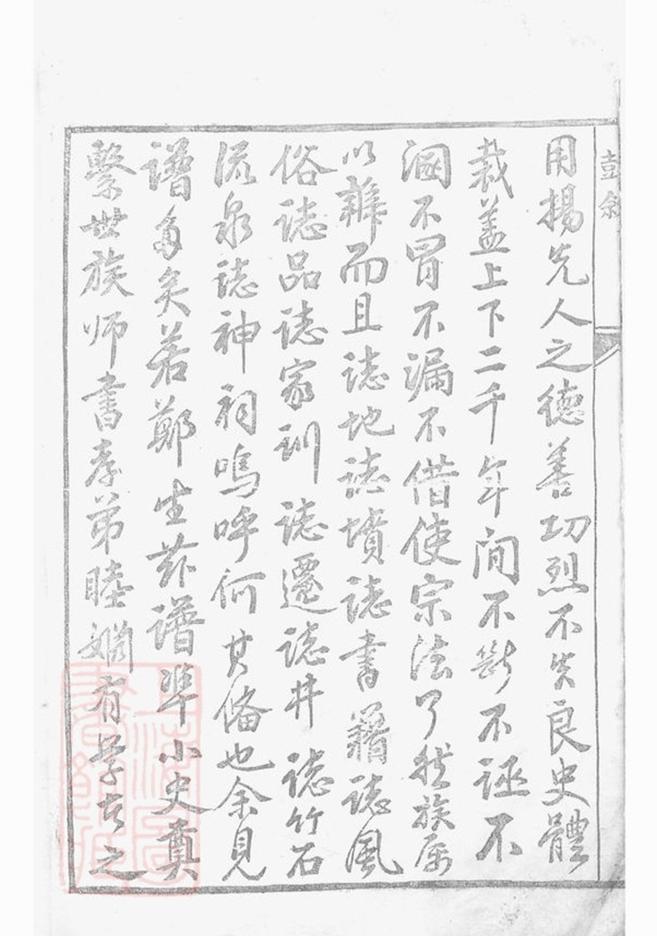 用揚先人之德善功烈不失良史體
裁蓋上下二千年间不斷不誣不
溷不冒不漏不借使宗法了然族属
以辨而且誌地誌墳誌書籍誌風
俗誌品誌家訓誌遷誌井誌竹石
流泉誌神祠嗚呼何其备也余見
譜多矣若鄭生兹譜準小史奠
繫世族师書孝弟睦婣有學者之